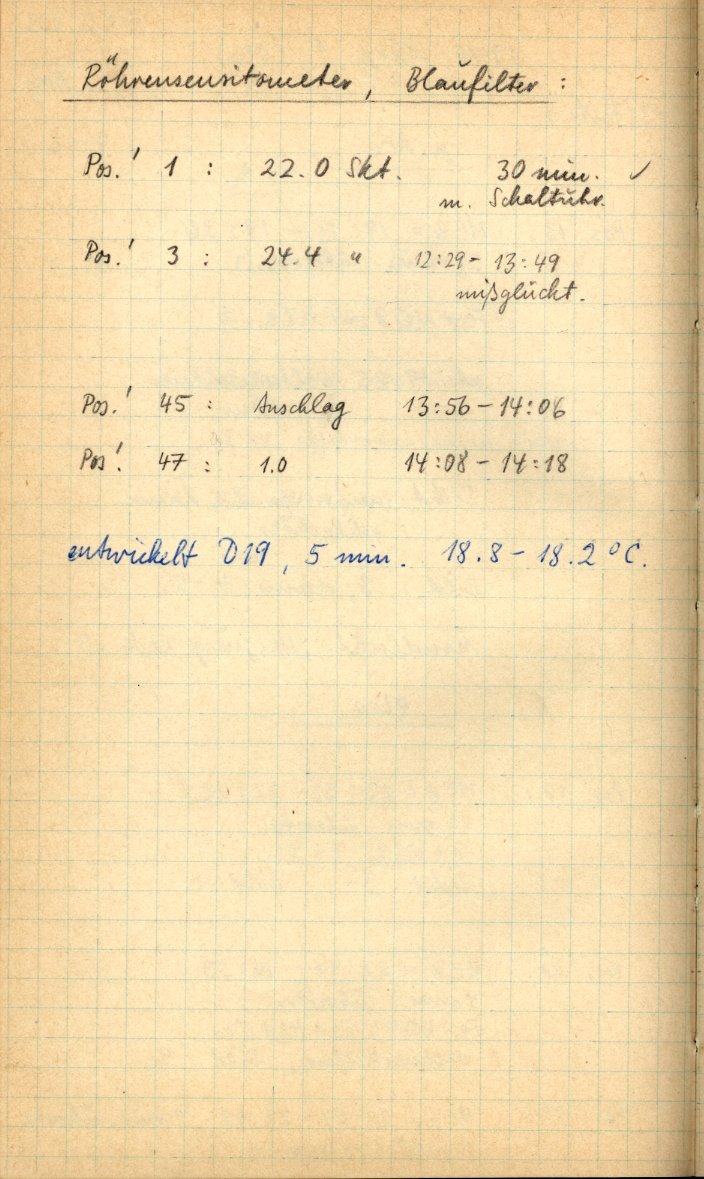 Röhrensensitometer, Blaufilter:
Pos.' 1 : 22.0 Skt. 30 min. ✓
m. Schaltuhr.
Pos.' 3 : 24.4 " 12:29 - 13:49
mißglückt.
Pos.' 45 : Anschlag 13:56 - 14:06
Pos.' 47 : 1.0 14:08 - 14:18
entwickelt D19, 5 min. 18.8 - 18.2 °C.